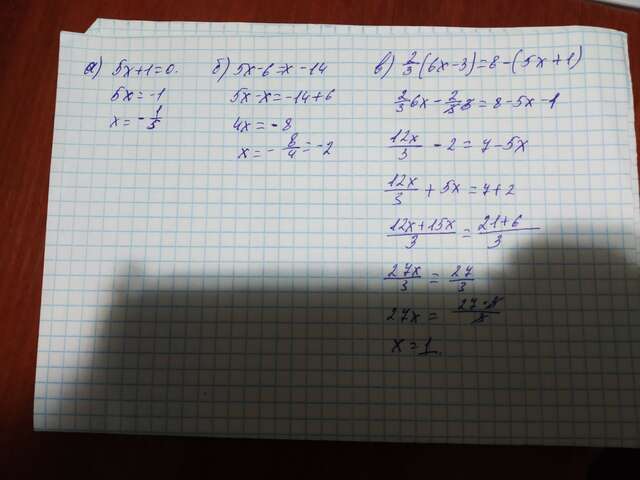 а) 5x+1=0.
5x=-1
x=-1/5
б) 5x-6=x-14
5x-x=-14+6
4x=-8
x=-8/4=-2
в) 2/3(6x-3)=8-(5x+1)
2/3 6x-2/3 3=8-5x-1
12x/3-2=7-5x
12x/3+5x=7+2
12x+15x/3=21+6/3
27x/3=27/3
27x=27·3/3
x=1.